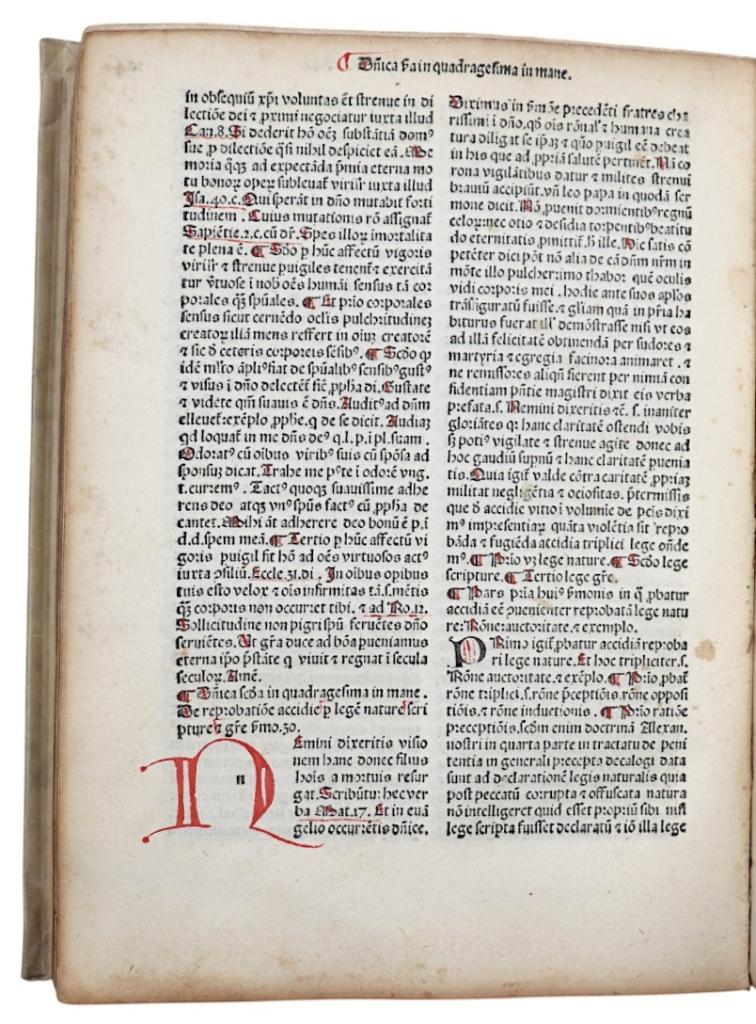 ¶ Dñica ẞa in quadragesima in mane.
in obsequiũ xp̃i voluntas ẽt strenue in di
lectiõe dei ⁊ p̱ximi negociatur iuxta illud
Can.8. Si dederit hõ oẽʒ substãtiã domꝰ
sue p̱ dilectiõe qͣsi nihil despiciet eã. Me
moria qͦʒ ad expectãda p̃mia eterna mo
tu bonoꝝ opeꝝ subleuat̃ virilit̃ iuxta illud
Isa.40.c. Qui sperãt in dño mutabũt forti
tudinem. Cuius mutationis rõ assignat̃
Sapiẽtie.2.c. cũ dr̃. Spes illoꝝ imortalita
te plena ẽ. ¶ Scðo p̱ hũc affectũ vigoris
virilit̃ ⁊ strenue puigiles tenent̃ ⁊ exercitã
tur v̓tuose i nobis oẽs humãi sensus tã cor
porales qͣʒ sp̃uales. ¶ Et p̓io corporales
sensus sicut cernẽdo oclĩs pulchritudineʒ
creatoꝝ illã mens reffert in oiuʒ creatorẽ
⁊ sic ð ceteris corporeis sẽsibꝰ. ¶ Scðo qͥ
idẽ ml̃to ãpliꝰ fiat de sp̃ualibꝰ sensibꝰ gustꝰ
⁊ visus i dño delectẽt̃ sic̃ p̱pha di. Gustate
⁊ videte qm̃ suauis ẽ dñs. Auditꝰ ad dñm
elleuet̃ exẽplo p̱phe. q̱ de se dicit. Audiaʒ
qd loquat̃ in me dñs deꝰ q.l.p.i pl.suam.
Odoratꝰ cũ oibus viribꝰ suis cũ spõsa ad
sponsuʒ dicat. Trahe me p̓te i odorẽ vng.
t.curremꝰ. Tactꝰ quoqʒ suauissime adhe
rens deo atqʒ vnꝰ sp̃us factꝰ cũ p̱pha de
cantet. Mihi ãt adherere deo bonũ ẽ p.i
d.d.spem meã. ¶ Tertio p̱ hũc affectũ vi
goris puigil fit hõ ad oẽs virtuosos actꝰ
iuxta ꝯsiliũ. Eccle.31.di. In oibus opibus
tuis esto velox ⁊ ois infirmitas tã.s.mẽtis
qͣʒ corporis non occurret tibi. ⁊ ad Ro.12.
Sollicitudine non pigri sp̃u feruẽtes dño
seruiẽtes. Ut gr̃a duce ad bõa pueniamus
eterna ip̃o p̃state q̱ viuit ⁊ regnat i secula
seculoꝝ. Amẽ.
¶ Dñica scða in quadragesima in mane.
De reprobatiõe accidie p̱ legẽ nature scri
pture ⁊ gr̃e ẞmo.30.
N n Emini dixeritis visio
nem hanc donec filius
hois a mortuis resur
gat. Scribũtur hec ver
ba Mat.17. Et in euã
gelio occurrẽtis dñice.
Diximus in ẞmõe precedẽti fratres cha
rissimi i dño. qð ois rõnal̃ ⁊ humana crea
tura diligat se ip̃aʒ ⁊ qͦ puigil eẽ debeat
in his que ad p̱priã salutẽ pertinẽt. Nã co
rona vigilãtibus datur ⁊ milites strenui
brauiũ accipiũt. vñ leo papa in quodã ser
mone dicit. Nõ puenit dormientibꝰ regnũ
celoꝝ: nec otio ⁊ desidia torpentibꝰ beatitu
do eternitatis p̱mittit̃. H̃ ille. Hic satis cõ
petẽter dici põt nõ alia de cã dñm nr̃m in
mõte illo pulcherrimo thabor quẽ oculis
vidi corporis mei. hodie ante suos ap̃los
trãsfiguratũ fuisse. ⁊ gl̃iam quã in pr̃ia ha
biturus fuerat ill̃ demõstrasse nisi vt eos
ad illã felicitatẽ obtinendã per sudores ⁊
martyria ⁊ egregia facinora animaret. ⁊
ne remissiores aliqñ fierent per nimiã con
fidentiam p̃ntie magistri dixit eis verba
prefata. s. Nemini dixeritis ⁊c̃. s. inaniter
gloriãtes qꝛ hanc claritatẽ ostendi vobis
sʒ potiꝰ vigilate ⁊ strenue agite donec ad
hoc gaudiũ supnũ ⁊ hanc claritatẽ puenia
tis. Quia igit̃ valde cõtra caritatẽ p̱priaʒ
militat negligẽtia ⁊ ociositas. p̃termissis
que ð accidie vitio i volumie de p̃cis dixi
mꝰ impresentiaꝝ quãta violẽtia sit repro
bãda ⁊ fugiẽda accidia triplici lege oñde
mꝰ. ¶ P̓io vʒ lege nature. ¶ Scðo lege
scripture. ¶ Tertio lege gr̃e.
¶ Pars p̓ia huiꝰ ẞmonis in q̱ p̱batur
accidiã eẽ p̱uenienter reprobatã lege natu
re: Rõne: auctoritate. ⁊ exemplo.
P Rimo igit̃ p̱batur accidiã reproba
ri lege nature. Et hoc tripliciter. s.
Rõne auctoritate. ⁊ exẽplo. ¶ P̓io p̱bat̃
rõne triplici. s. rõne p̃ceptiõis. rõne opposi
tiõis. ⁊ rõne inductionis. ¶ P̓io ratiõe
preceptiõis. scðm enim doctrinã Alexan.
nostri in quarta parte in tractatu de peni
tentia in generali precepta decalogi data
sunt ad declarationẽ legis naturalis quia
post peccatũ corrupta ⁊ offuscata natura
nõ intelligeret quid esset propriũ sibi nisi
lege scripta fuisset declaratũ ⁊ iõ illa lege